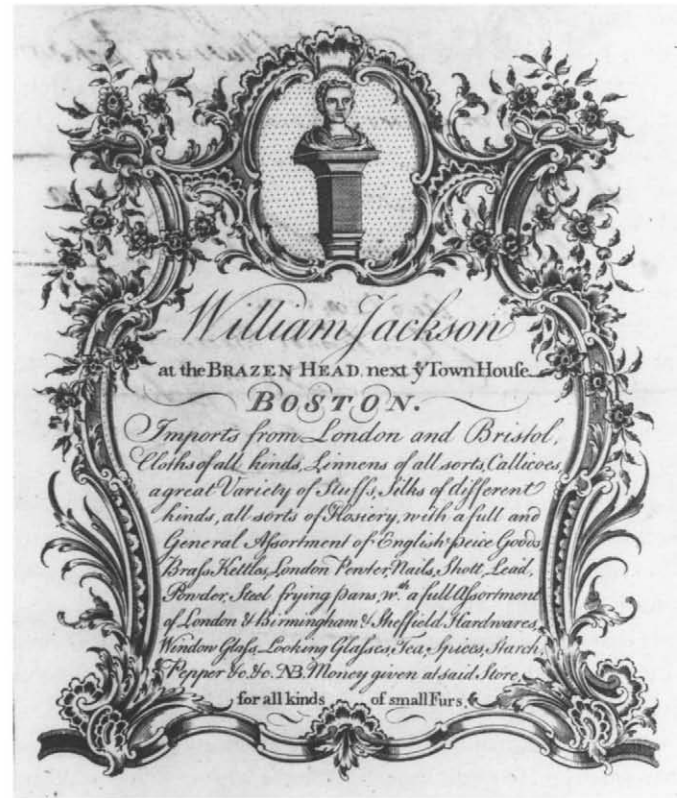 William Jackson
at the BRAZEN HEAD. next yͤ Town Houſe
BOSTON.
Imports from London and Bristol,
Cloths of all kinds, Linnens of all sorts, Callicoes,
a great Variety of Stuffs, Silks of different
kinds, all sorts of Hosiery, with a full and
General Aſsortment of English peice Goods,
Braſs, Kettles, London Pewter, Nails, Shott, Lead,
Powder, Steel frying pans, wᵗʰ a full Aſsortment
of London & Birmingham & Sheffield Hardwares,
Window Glaſs, Looking Glaſses, Tea, Spices, Starch,
Pepper &c. &c. NB. Money given at said Store,
for all kinds of small Furs